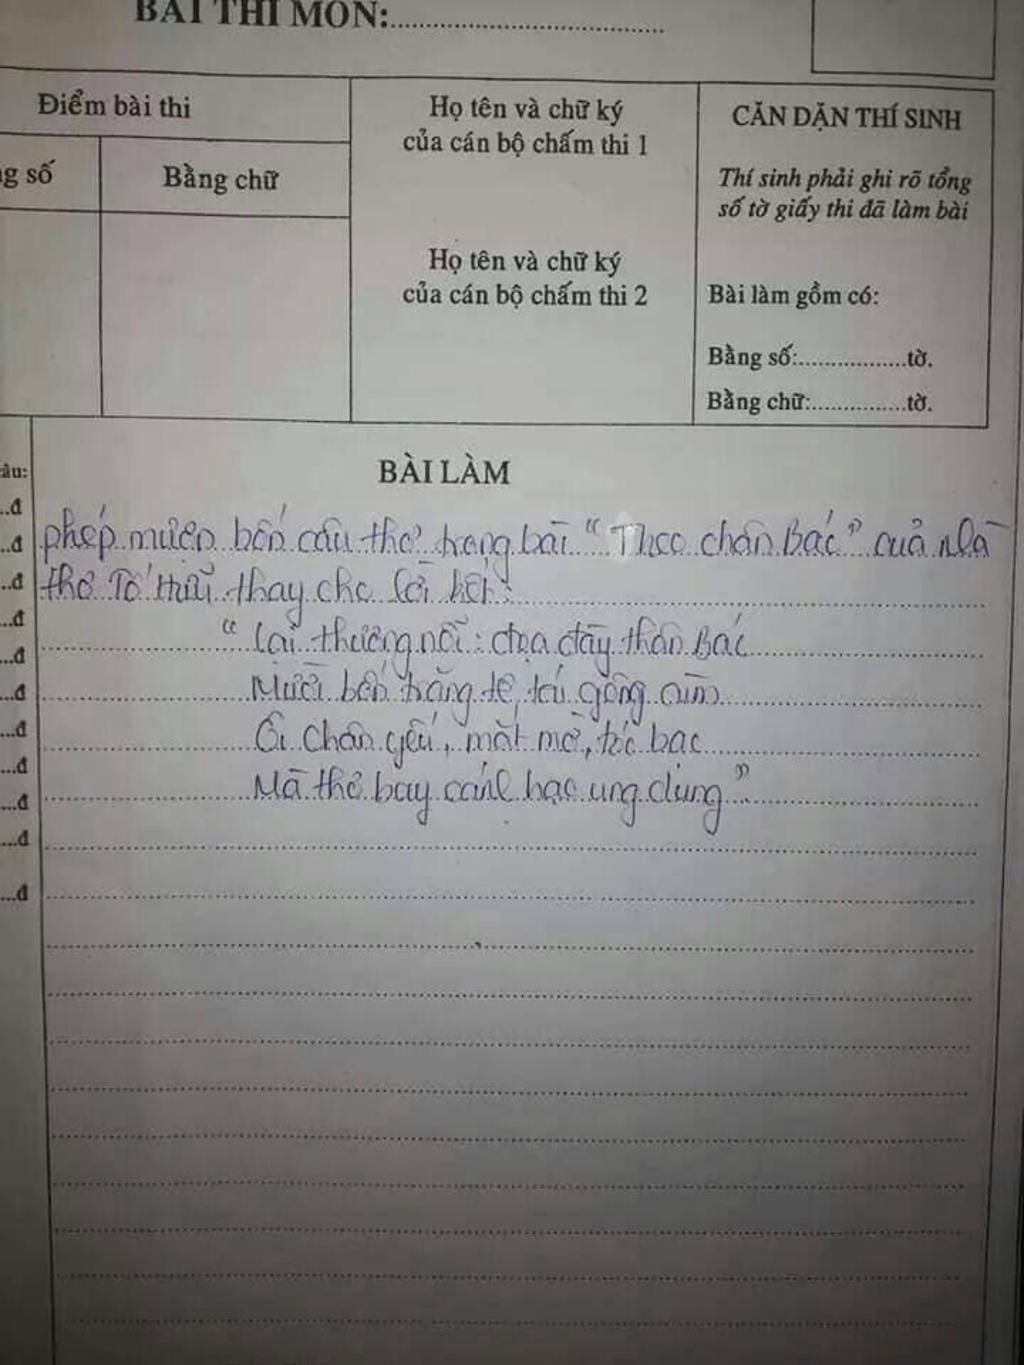 BÀI THI MÔN:
Điểm bài thi
Họ tên và chữ ký
của cán bộ chấm thi 1
CĂN DẶN THÍ SINH
g số
Bằng chữ
Thí sinh phải ghi rõ tổng
số tờ giấy thi đã làm bài
Họ tên và chữ ký
của cán bộ chấm thi 2
Bài làm gồm có:
Bằng số:.................tờ.
Bằng chữ:...............tờ.
âu:
BÀI LÀM
...đ
...đ
...đ
...đ
...đ
...đ
...đ
...đ
...đ
...đ
...đ
phép mượn bốn câu thơ trong bài "Theo chân Bác" của nhà
thơ Tố Hữu thay cho lời kết:
"Lại thương nỗi: đọa đày thân Bác
Mười bốn trăng tê tái gông cùm
Ôi chân yếu, mắt mờ, tóc bạc
Mà thơ bay cánh hạc ung dung"